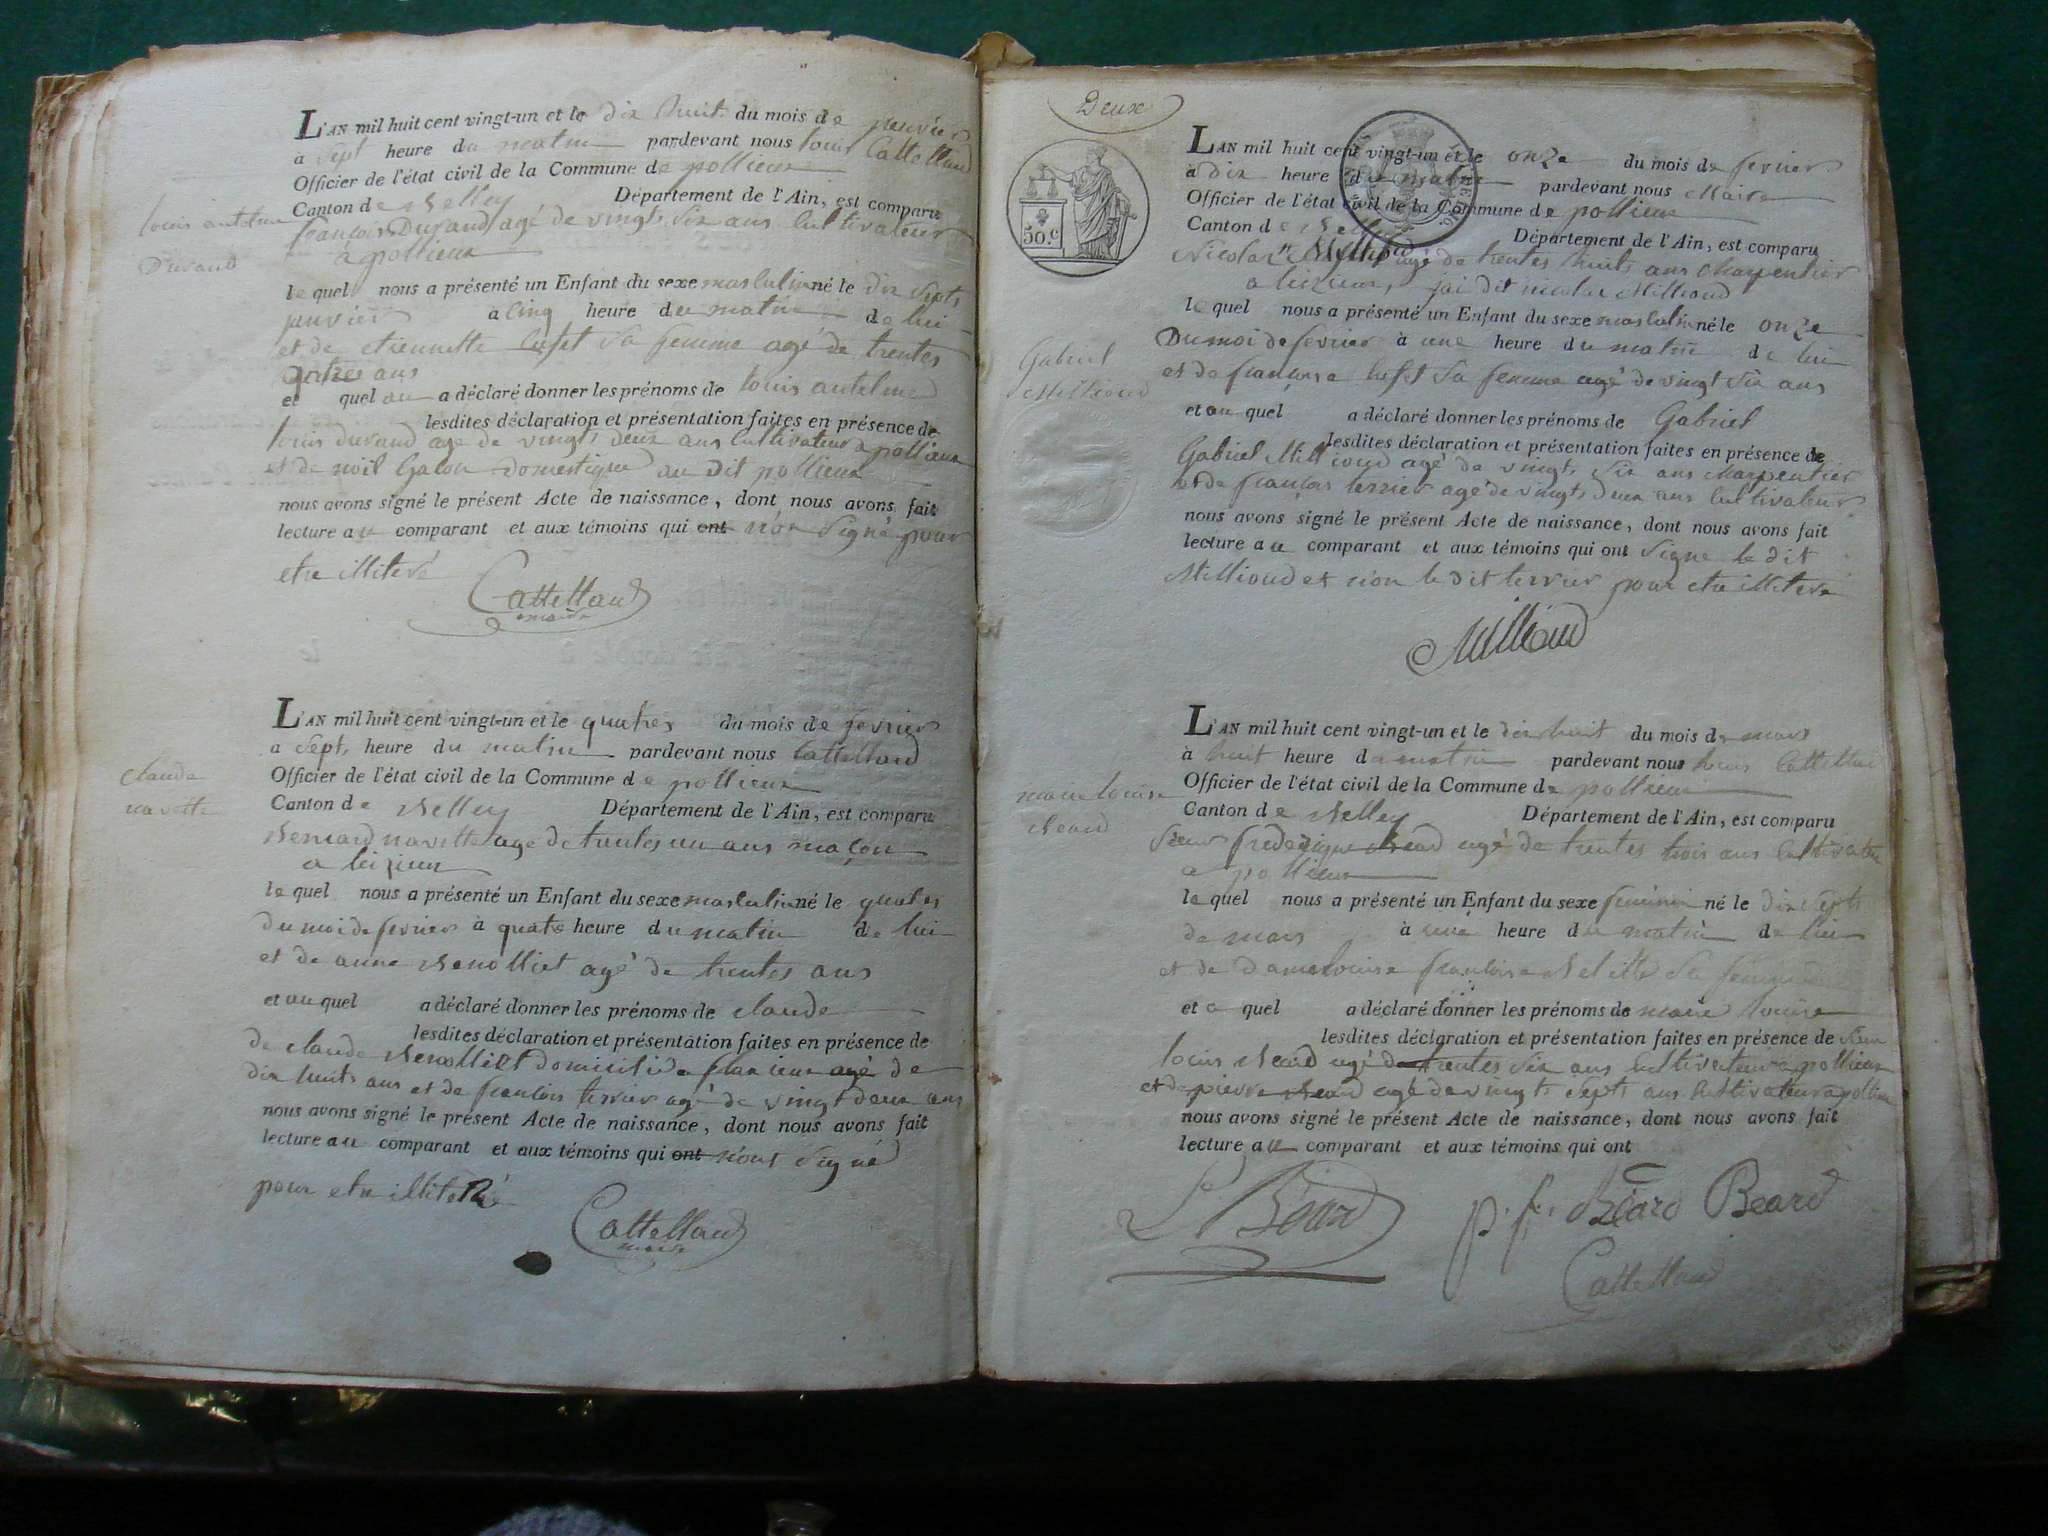 louis antelme
Durand
L'AN mil huit cent vingt-un et le dix huit du mois de janvier
à sept heure du matin pardevant nous louis Cattelland
Officier de l'état civil de la Commune de pollieux
Canton de Belley Département de l'Ain, est comparu
françois Durand agé de vingts six ans Cultivateur
a pollieux
le quel nous a présenté un Enfant du sexe masculin né le dix septs
janvier à Cinq heure du matin de lui
et de etiennette sa femme agé de trentes
ans
et quel au a déclaré donner les prénoms de louis antelme
lesdites déclaration et présentation faites en présence de
louis durand agé de vingts deux ans Cultivateur a pollieux
et de noil Galon Domestique au Dit pollieux
nous avons signé le présent Acte de naissance, dont nous avons fait
lecture au comparant et aux témoins qui ont non signé pour
etre illiteré
Cattelland
maire
claude
navette
L'AN mil huit cent vingt-un et le quatres du mois de fevrier
a septs heure du matin pardevant nous Cattelland
Officier de l'état civil de la Commune de pollieux
Canton de Belley Département de l'Ain, est comparu
Bernard navette agé de trentes un ans maçon
a
le quel nous a présenté un Enfant du sexe masculin né le quatres
du moi de fevrier à quatre heure du matin de lui
et de anne Benolliet agé de trentes ans
et au quel a déclaré donner les prénoms de claude
lesdites déclaration et présentation faites en présence de
de claude Benolliet domicilié a agé de
dix huits ans et de françois terrier agé de vingt deux ans
nous avons signé le présent Acte de naissance, dont nous avons fait
lecture au comparant et aux témoins qui ont n'ont signé
pour etre illiteré
Cattelland
maire
Deux
50.c
Gabriel
Millioud
L'AN mil huit cent vingt-un et le onze du mois de fevrier
à dix heure du matin pardevant nous Maire
Officier de l'état civil de la Commune de pollieux
Canton de Belley Département de l'Ain, est comparu
Nicolas agé de trentes huits ans charpentier
a jai dit nicolas Millioud
le quel nous a présenté un Enfant du sexe masculin né le onze
Du moi de fevrier à une heure du matin de lui
et de françoise sa femme agé de vingt six ans
et au quel a déclaré donner les prénoms de Gabriel
lesdites déclaration et présentation faites en présence de
Gabriel Millioud agé de vingts six ans charpentier
et de françois terrier agé de vingts deux ans Cultivateur
nous avons signé le présent Acte de naissance, dont nous avons fait
lecture au comparant et aux témoins qui ont signe le dit
Millioud et non le dit terrier pour etre illiteré
Millioud
marie louise
Beard
L'AN mil huit cent vingt-un et le dix huit du mois de mars
à huit heure du matin pardevant nous louis Cattelland
Officier de l'état civil de la Commune de pollieux
Canton de Belley Département de l'Ain, est comparu
Sieur frederique Beard agé de trentes trois ans Cultivateur
a pollieux
le quel nous a présenté un Enfant du sexe feminin né le dix septs
de mars à une heure du matin de lui
et de Dame louise françoise sa femme
et a quel a déclaré donner les prénoms de marie louise
lesdites déclaration et présentation faites en présence de Sieur
louis Beard agé de trentes six ans Cultivateur a pollieux
et de pierre Beard agé de vingts septs ans Cultivateur a pollieux
nous avons signé le présent Acte de naissance, dont nous avons fait
lecture au comparant et aux témoins qui ont
L Béard p. f. Béard Beard
Cattelland